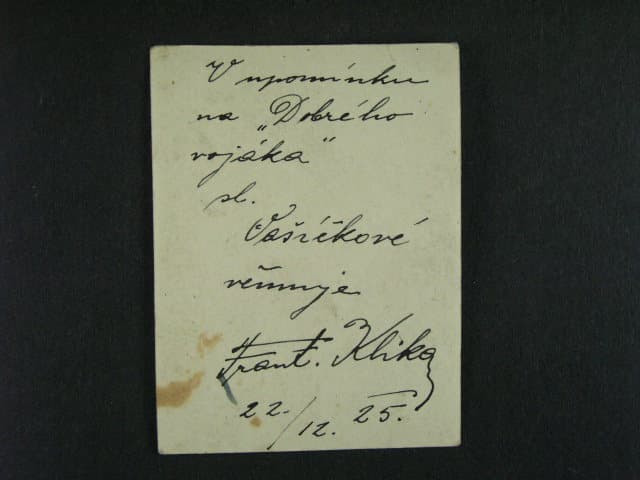 V upomínku
na „Dobrého
vojáka"
sl.
Vašíčkové
věnuje
Frant. Klika
22./12. 25.